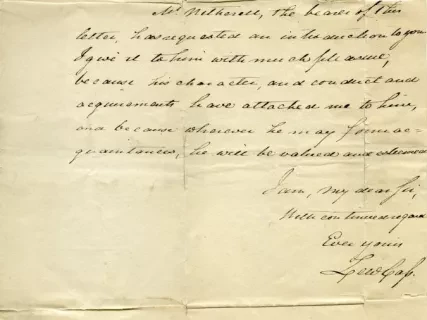 Mr Netherell, the bearer of this
letter, has requested an introduction to you
I give it to him with much pleasure,
because his character, and conduct and
acquirements have attached me to him,
and because wherever he may form ac-
quaintances, he will be valued and esteemed
I am, my dear Sir,
With continued regard
Ever yours
Lew Cass.